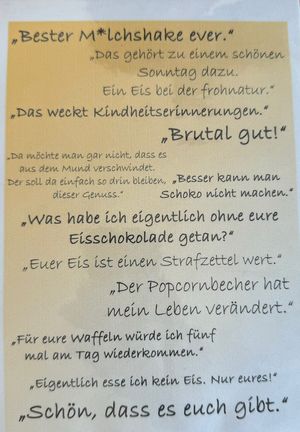 „Bester M*lchshake ever.“
„Das gehört zu einem schönen
Sonntag dazu.
Ein Eis bei der frohnatur.“
„Das weckt Kindheitserinnerungen.“
„Brutal gut!“
„Da möchte man gar nicht, dass es
aus dem Mund verschwindet.
Der soll da einfach so drin bleiben,
dieser Genuss.“
„Besser kann man
Schoko nicht machen.“
„Was habe ich eigentlich ohne eure
Eisschokolade getan?“
„Euer Eis ist einen Strafzettel wert.“
„Der Popcornbecher hat
mein Leben verändert.“
„Für eure Waffeln würde ich fünf
mal am Tag wiederkommen.“
„Eigentlich esse ich kein Eis. Nur eures!“
„Schön, dass es euch gibt.“